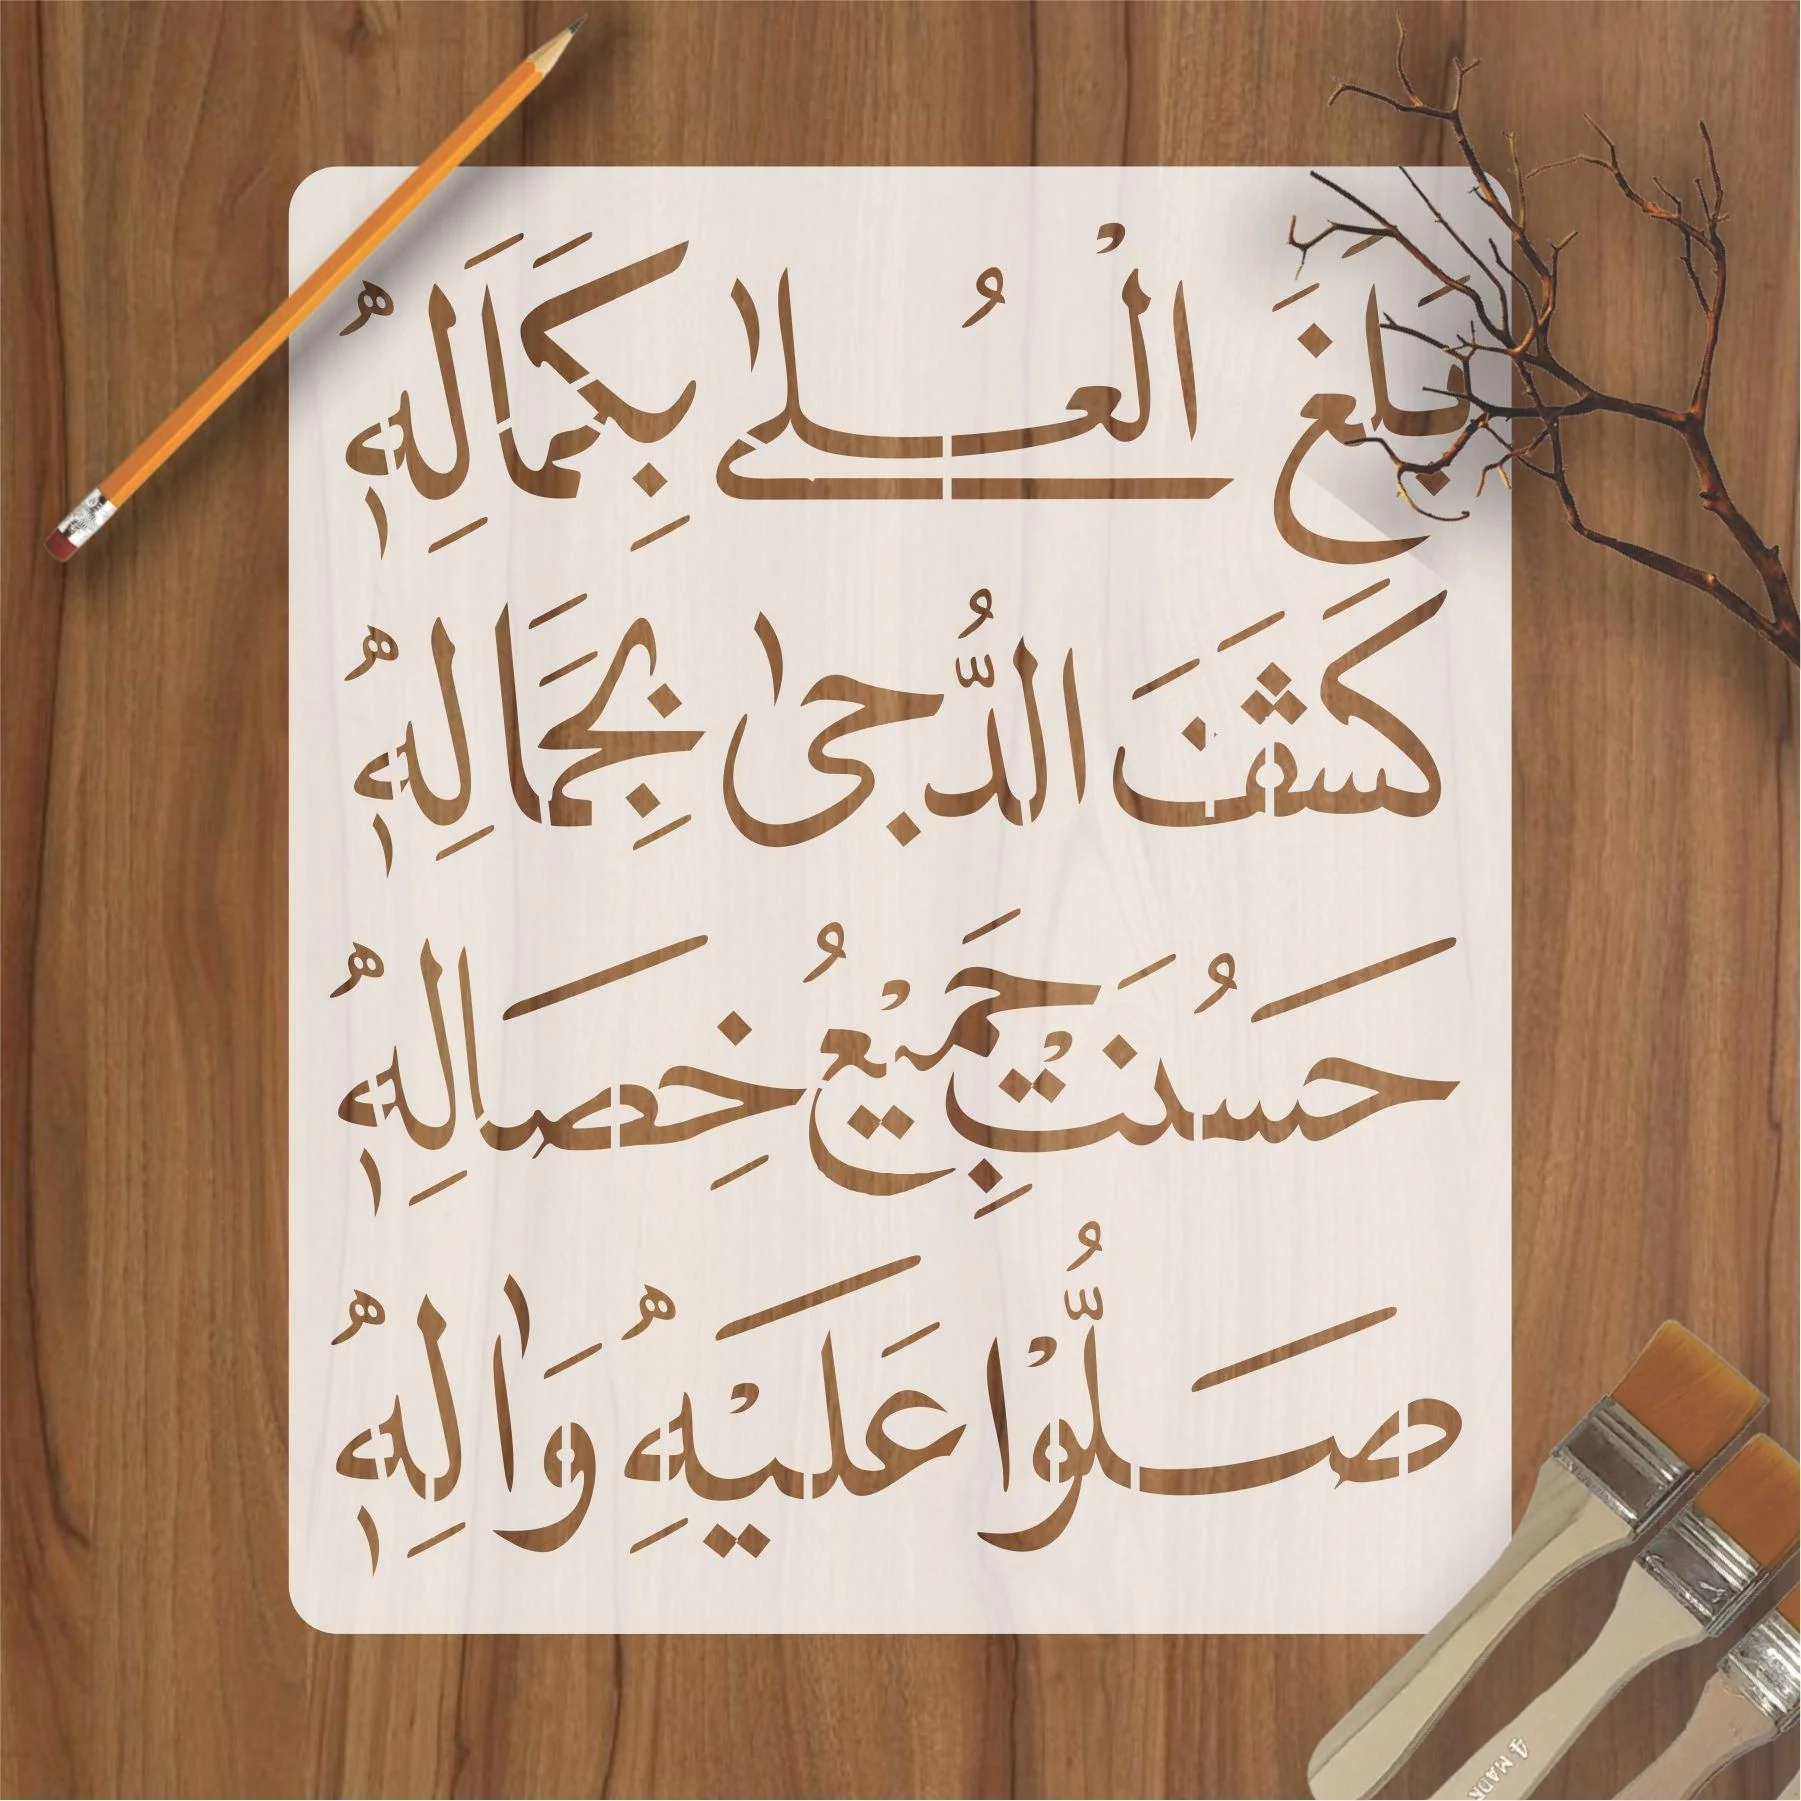 بَلَغَ الْعُلٰى بِكَمَالِهٖ
كَشَفَ الدُّجٰى بِجَمَالِهٖ
حَسُنَتْ جَمِيْعُ خِصَالِهٖ
صَلُّوْا عَلَيْهِ وَاٰلِهٖ
4 MADR